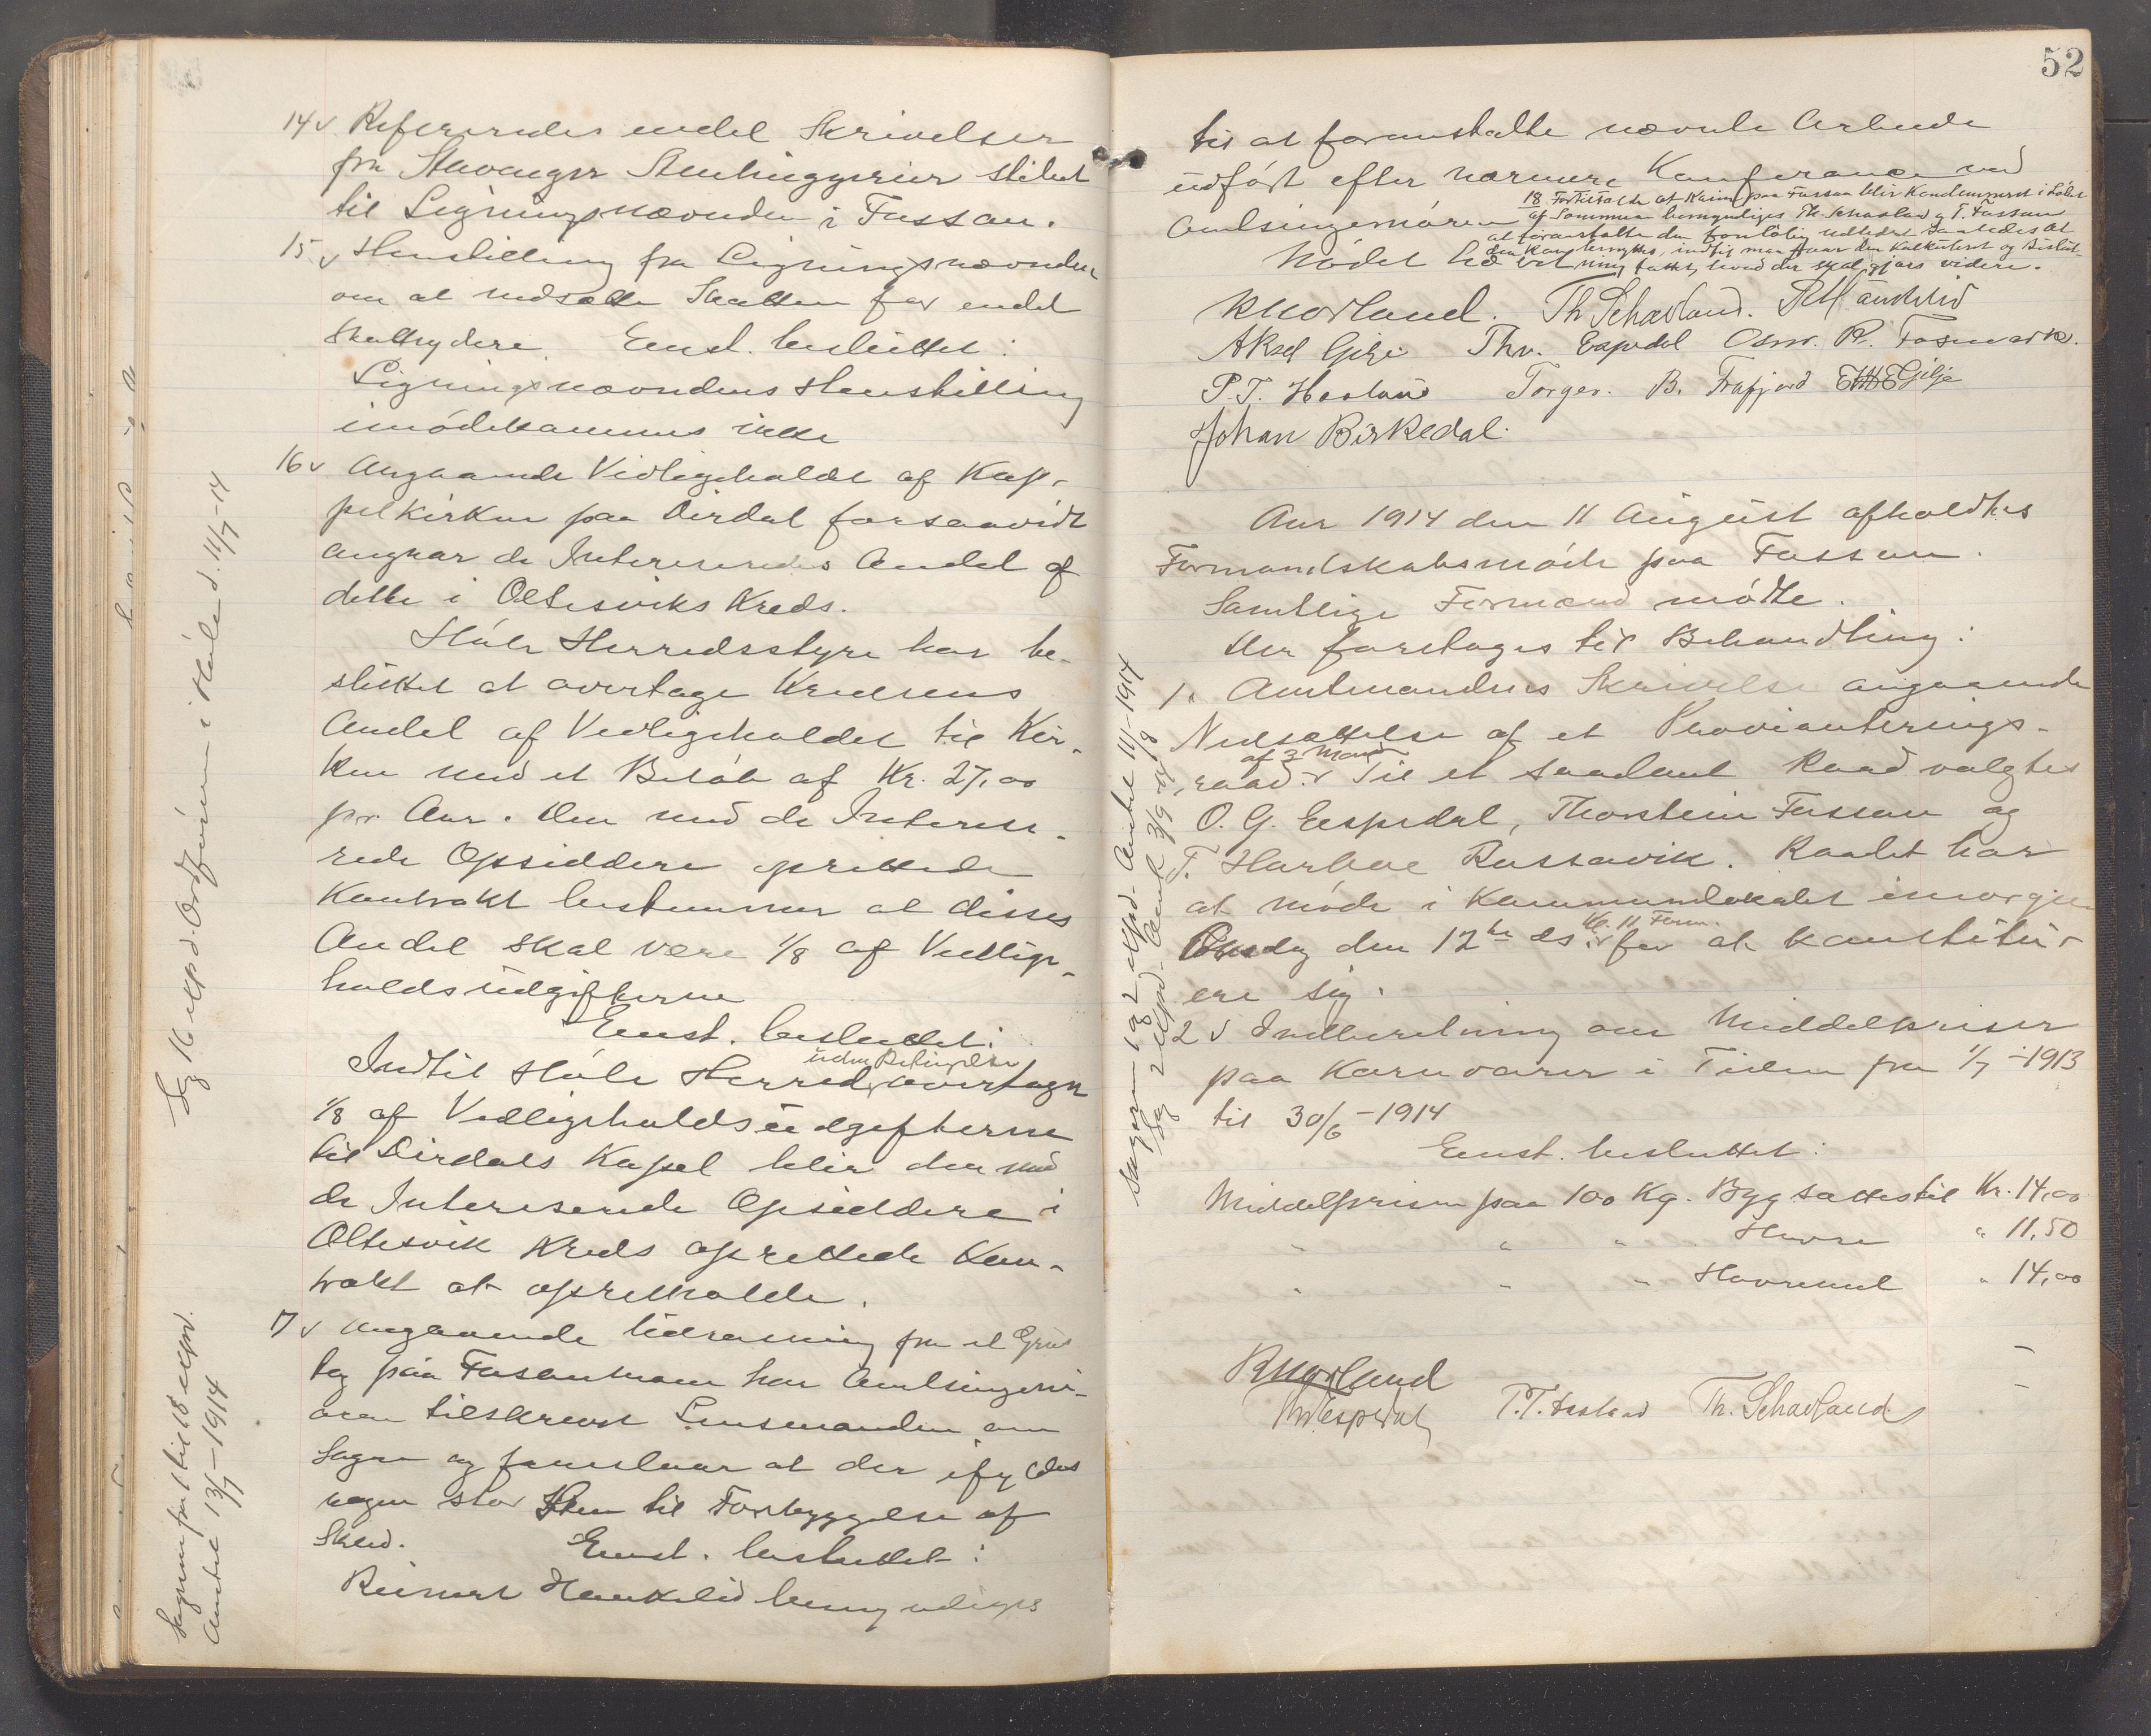 14 v Refereredes endel Skrivelser
fra Stavanger Stenhuggerier stilet
til Ligningsnævnden i Fossan.
15 v Henstilling fra Ligningsnævnden
om at nedsætte Skatten for endel
Skatteydere. Enst. besluttet:
Ligningsnævndens Henstilling
imødekommes ikke
16 v Angaaende Vedligeholdet af Kap-
pelkirken paa Dirdal forsaavidt
angaar de Interesseredes Andel af
dette i Oltesviks Kreds.
Høle Herredsstyre har be-
sluttet at overtage Kredsens
Andel af Vedligeholdet til Kir-
ken med et Beløb af Kr. 27,00
pr. Aar. Den med de Interesse-
rede Opsiddere oprettede
Kontrakt bestemmer at disses
Andel skal være 1/8 af Vedlige-
holdsudgifterne
Enst. besluttet:
uden Betingelse
Indtil Høle Herred overtager
1/8 af Vedligeholdsudgifterne
til Dirdals Kapel blir den med
de Interesserede Opsiddere i
Oltesvik Kreds oprettede Kon-
trakt at opretholde.
17 v Angaaende Udrasning fra et Grus
tag paa Fosanmoen har Amtsingeni-
øren tilskrevet Lensmanden om
Sagen og foreslaar at der ifyldes
nogen stor Sten til Forbyggelse af
Skred. Enst. besluttet:
Reinert Haukelid bemyndiges
Sag 16 expd. Ordføreren i Høle d. 11/7-14
Sagerne fra 1 til 18 expd.
Amtet 13/7-1914
52
til at foranstalte nævnte Arbeide
udført efter nærmere Konferance med
Amtsingeniøren
18 Fortilfælde at Kaien paa Fossan blir Kondemneret i Løbet
af Sommeren bemyndiges Th. Schavland og T. Fossan
at foranstalte den foreløbig udbedret saaledes at
den kan benyttes, indtil man faar den kalkuleret og Beslut-
ning fattet, hvad der skal gjøres videre.
Mødet hævet
R Norland. Th Schavland. R Haukelid
Aksel Gilje Thv. Espedal Osm. R. Fosmark.
P. T. Hastand Torger. B. Frafjord E Gilje
Johan Birkedal.
Aar 1914 den 11 August afholdtes
Formandskabsmøde paa Fossan.
Samtlige Formænd mødte.
Der foretoges til Behandling:
1. Amtmandens Skrivelse angaaende
Nedsættelse af et Provianterings-
af 3 Mænd
raad. v Til et saadant Raad valgtes
O. G. Espedal, Thorstein Fossan og
T. Harboe Rossavik. Raadet har
at møde i Kommunelokalet imorgen
Kl. 11 Form.
Onsdag den 12te ds. v for at konstitu-
ere sig.
2 v Indberetning om Middelpriser
paa Kornvarer i Tiden fra 1/7-1913
til 30/6-1914
Enst. besluttet:
Middelprisen paa 100 Kg. Byg sættes til Kr. 14,00
" " " Havre " 11,50
" " " Havremel " 14,00
R Norland
Thv Espedal P. T. Hastand Th. Schavland
Sagerne 1 og 2 expd. Amtet 11/8-1914
Sag 2 expd. Amtet 3/9-14